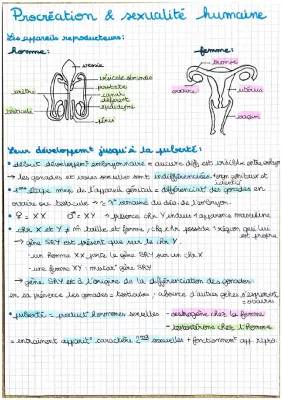 Procréation & sexualité humaine
Les appareils reproducteurs:
homme:
femme:
vessie
trompe
vésicule séminale
prostate
canal
déférent
épididyme
urètre
testicule
pénis
ovaire
utérus
vagin
Leur développemt jusqu'à la puberté:
• début développemt embryonnaire = aucune diff est visible entre embryo
→ les gonades et voies sexuelles sont indifférenciées
• 1ère étape mep de l'appareil génital = différenciat° des gonades en
ovaire ou testicule → = 7e semaine du dév. de l'embryon
• ♀ = XX ♂ = XY → présence chr. Y induit 1 appareil masculin
• chr X et Y ≠ in taille et forme, chq chr possède 1 région qui lui
est propre
→ gène SRY est présent que sur le chr Y.
- un homme XX porte le gène SRY par un chr X
- une femme XY: mutat° gène SRY
→ gène SRY est à l'origine de la différenciation des gonades
en sa présence les gonades = testicules; absence d'autres gènes s'expriment
= ovaires
• puberté = product° hormones sexuelles - œstrogène chez la femme
- testostérone chez l'homme
= entraînent apparit° caractère 2nd sexuelles + fonctionnemt app. repro.